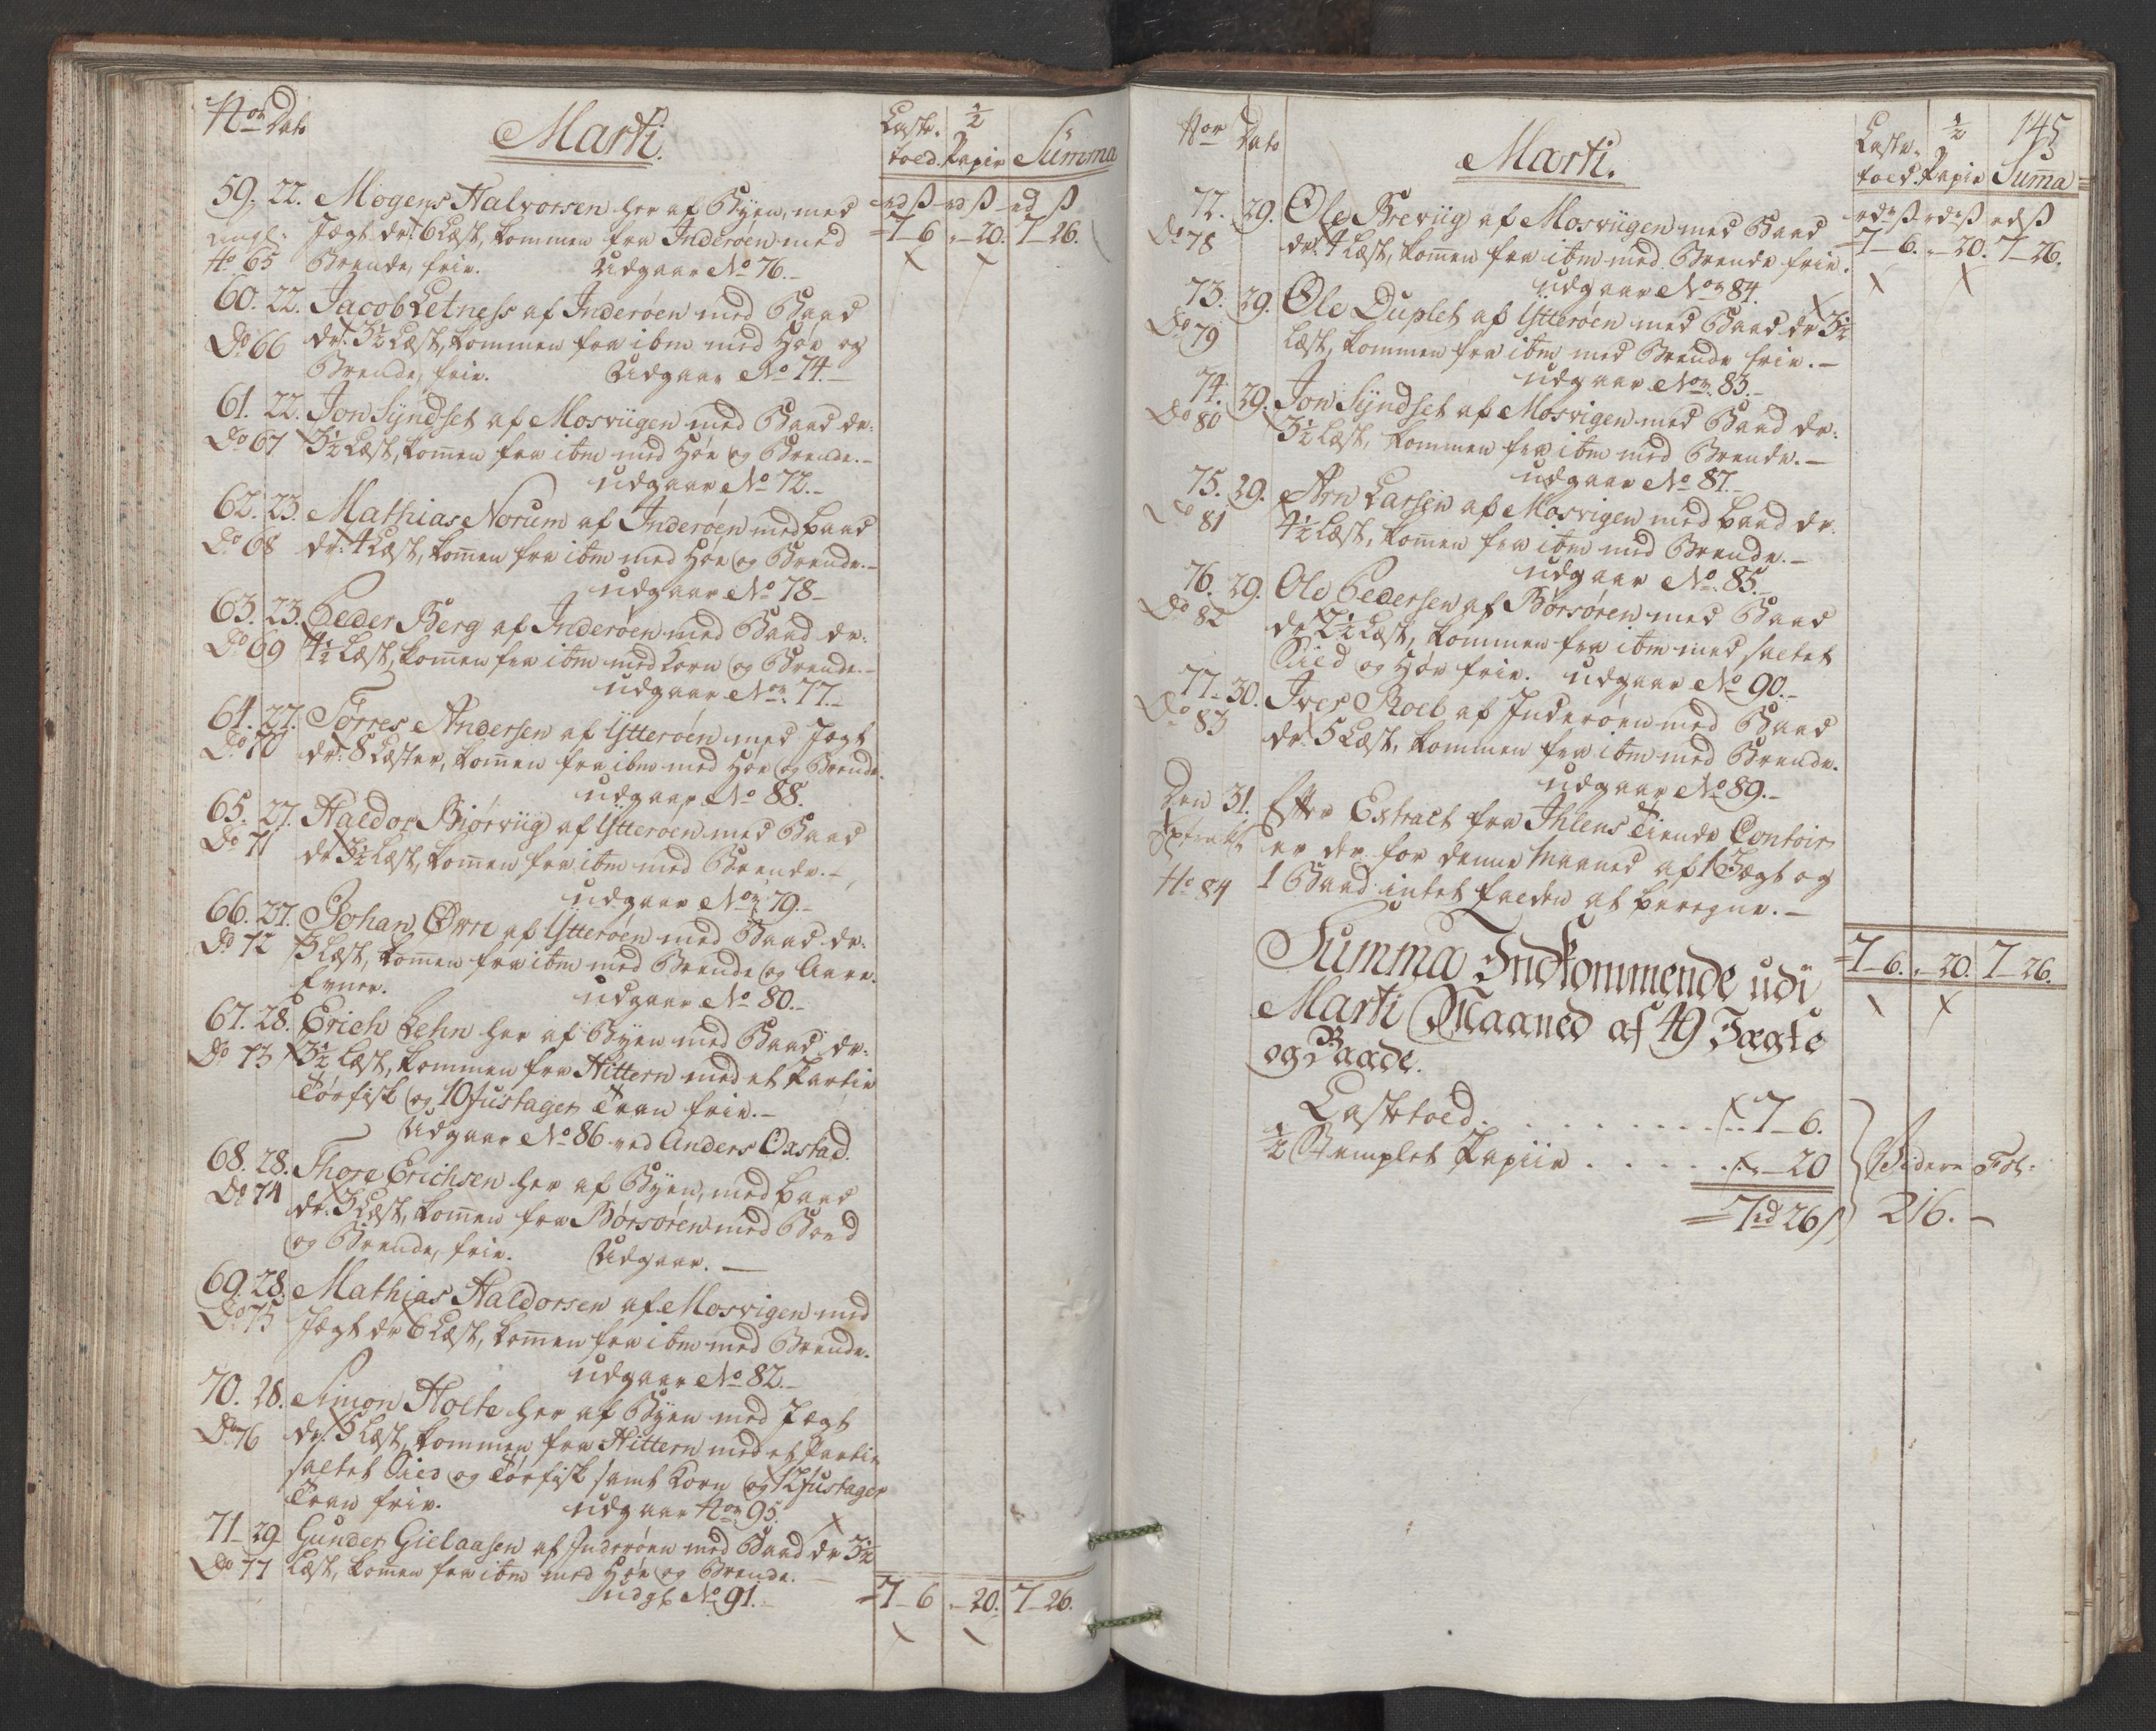 Nor Dato Marti. Laste- ½
toed. Papir Summa
59. 22. Mogens Halvorsen her af Byen, med rd ß rd ß rd ß
Angl: Jægt dr: 6 Læst, kommen fra Inderøen med 7_6 „_20. 7_26.
No 65 Brende, frie. Udgaar No 76._
60. 22. Jacob Letness af Inderøen med Baad
Do 66 dr: 3½ Læst, kommen fra ibm med Høe og
Brende, frie. Udgaar No 74._
61. 22. Jon Syndset af Mosviigen med Baad dr:
Do 67 3½ Læst, kom̄en fra ibm med Høe og Brende._
udgaar No 72._
62. 23. Mathias Norum af Inderøen med baad
Do 68 dr: 4 Læst, kom̄en fra ibm med Høe og Brende._
udgaar No 78_
63. 23. Peder Berg af Inderøen med Baad dr:
Do 69 4½ Læst, kom̄en fra ibm med Korn og Brende._
udgaar Nor 77._
64. 27. Torres Andersen af Ytterøen med Jægt
Do 70 dr: 8 Læster, kom̄en fra ibm med Høe og Brende.
udgaar No 88.
65. 27. Haldor Biørviig af Ytterøen med Baad
Do 71 dr 3½ Læst, kom̄en fra ibm med Brende._
udgaar Nor 79._
66. 27. Johan Øvre af Ytterøen med Baad dr:
Do 72 3 Læst, kom̄en fra ibm med Brende og Aare-
Emner. udgaar No 80._
67. 28. Erich Lehn her af Byen med Baad dr:
Do 73 3½ Læst, kommen fra Hittern med et Partie
Tørfisk og 10 fustager Tran frie._
Udgaar No 86 ved Anders Oxstad.
68. 28. Thore Erichsen her af Byen, med baad
Do 74 dr. 3 Læst, kom̄en fra Børsøren med Bord
og Brende, frie. Udgaar._
69. 28. Mathias Haldorsen af Mosvigen med
Do 75 Jægt dr 6 Læst, kom̄en fra ibm med Brende.
udgaar No 82._
70. 28. Simon Holte her af Byen med Jægt
Do 76 dr. 5 Læst, kommen fra Hittern med et Partie
saltet Sild og Tørfisk samt Korn og 12 fustager
Tran frie. udgaar Nor 95.
71_ 29_ Gunder Gielaasen af Inderøen med Baad dr 3½
Do 77 Læst, kom̄en fra ibm med Høe og Brende._
udgl No 91._ 7_6 „_20. 7_26.
Nor Dato Marti. Laste- ½ 145
toed. Papir Sum̄a
72. 29. Ole Breviig af Mosviigen med Baad rdr ß rdr ß rd ß
Do 78 dr. 4 Læst, kom̄en fra ibm med Brende frie. 7_6. „_20. 7_26.
udgaar Nor 84.
73. 29. Ole Duplet af Ytterøen med Baad dr 3½
Do 79 Læst, kommen fra ibm med Brende frie._
udgaar Nor 83._
74. 29. Jon Syndset af Mosvigen med Baad dr:
Do 80 3½ Læst, kommen fra ibm med Brende._
udgaar No 87._
75. 29. Arn Larsen af Mosvigen med baad dr.
Do 81 4½ Læst, kom̄en fra ibm med Brende._
udgaar No. 85._
76. 29. Ole Pedersen af Børsøren med Baad
Do 82 dr 2½ Læst, kommen fra ibm med saltet
Sild og Høe frie. udgaar No 90._
77_ 30. Iver Roel af Inderøen med Baad
Do 83 dr. 5 Læst, kommen fra ibm med Brende.
udgaar No 89._
Den 31. Efter Extract fra Ihlens Tiende Contoir
Extract er der for denne Maaned af 1 Jægt og
No 84 1 Baad intet falden at beregne._
Summa Indkommende udi 7_6. „_20. 7_26.
Marti Maaned af 49 Jægte
og Baade.
Lastetoed. . . . . . . . . 7_6.
½ Stemplet Papiir . . . . . „_20 Videre Fol:
7rd 26ß 216._